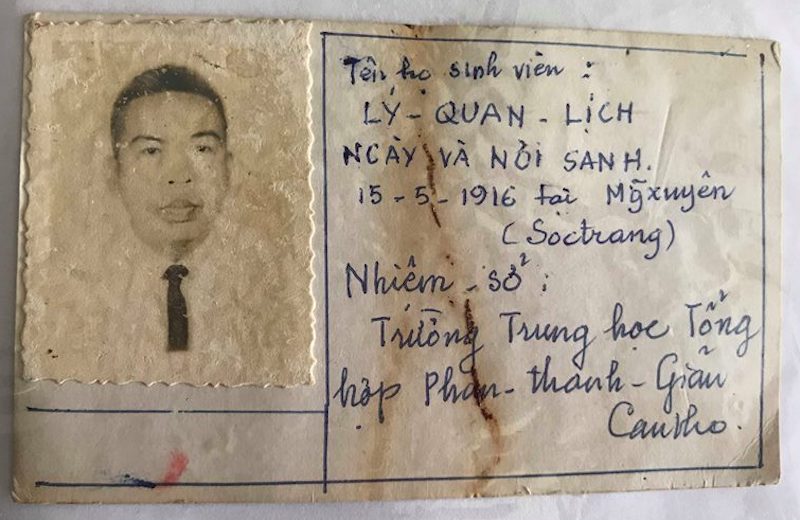 Tên họ sinh viên :
LÝ - QUAN - LỊCH
NGÀY VÀ NƠI SANH.
15 - 5 - 1916 tại Mỹxuyên
(Soctrang)
Nhiệm - sở :
Trường Trung học Tổng
hợp Phan - thanh - Giản
Cantho.